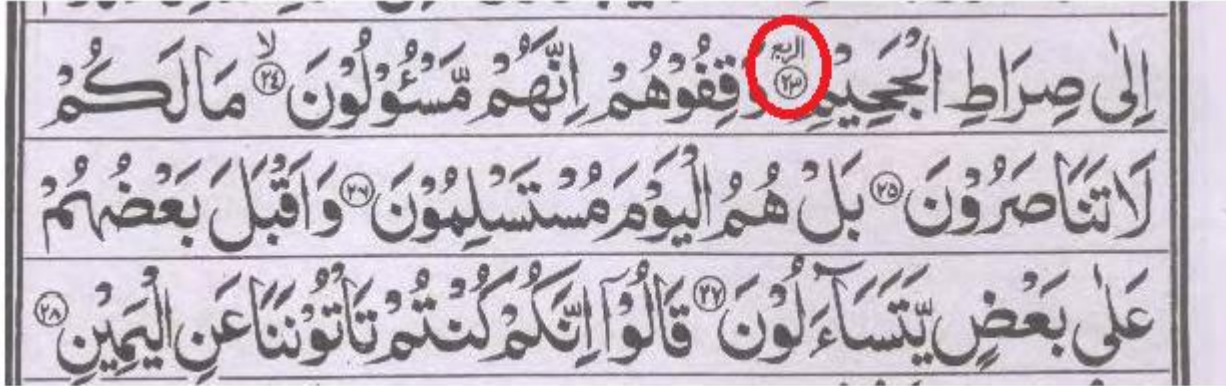 اِلٰى صِرَاطِ الْجَحِيْمِ ۝٢٣ الربع وَقِفُوْهُمْ اِنَّهُمْ مَّسْـُٔوْلُوْنَ ۝٢٤ۙ مَا لَكُمْ
لَا تَنَاصَرُوْنَ ۝٢٥ بَلْ هُمُ الْيَوْمَ مُسْتَسْلِمُوْنَ ۝٢٦ وَاَقْبَلَ بَعْضُهُمْ
عَلٰى بَعْضٍ يَّتَسَآءَلُوْنَ ۝٢٧ قَالُوْٓا اِنَّكُمْ كُنْتُمْ تَاْتُوْنَنَا عَنِ الْيَمِيْنِ ۝٢٨